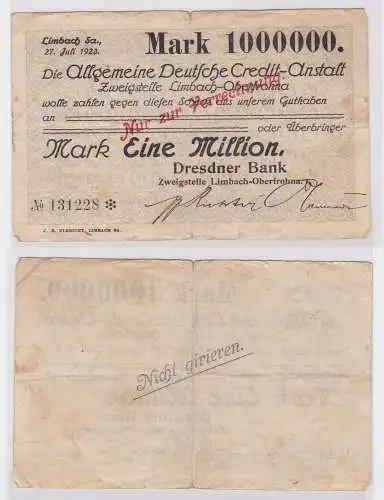 Limbach Sa.,
27. Juli 1923.
Mark 1000000.
Die Allgemeine Deutsche Credit-Anstalt
Zweigstelle Limbach-Oberfrohna
wolle zahlen gegen diesen Scheck aus unserem Guthaben
an
oder Überbringer
Nur zur Verrechnung.
Mark Eine Million.
Dresdner Bank
Zweigstelle Limbach-Oberfrohna.
№ 131228 ✻
J. R. ULBRICHT, LIMBACH SA.
Nicht girieren.